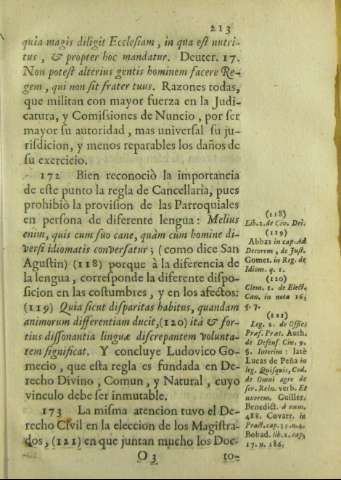 213
quia magis diligit Ecclesiam, in qua est nutri-
tus, & propter hoc mandatur. Deuter. 17.
Non potest alterius gentis hominem facere Re-
gem, qui non sit frater tuus. Razones todas,
que militan con mayor fuerza en la Judi-
catura, y Comissiones de Nuncio, por ser
mayor su autoridad, mas universal su ju-
risdicion, y menos reparables los daños de
su exercicio.
172 Bien reconociò la importancia
de este punto la regla de Cancellarìa, pues
prohibiò la provision de las Parroquiales
en persona de diferente lengua: Melius
enim, quis cum suo cane, quàm cum homine di-
versi idiomatis conversatur; (como dice San
Agustin) (118) porque à la diferencia de
la lengua, corresponde la diferente dispo-
sicion en las costumbres, y en los afectos:
(119) Quia sicut disparitas habitus, quandam
animorum differentiam ducit, (120) ità & for-
tius dissonantia linguæ discrepantem volunta-
tem significat. Y concluye Ludovico Go-
mecio, que esta regla es fundada en De-
recho Divino, Comun, y Natural, cuyo
vinculo debe ser inmutable.
173 La misma atencion tuvo el De-
recho Civil en la eleccion de los Magistra-
dos, (121) en que juntan mucho los Doc-
O 3
to-
(118)
Lib. 2. de Civ. Dei.
(119)
Abbas in cap. Ad
Decorem, de Inst.
Gomet. in Reg. de
Idiom. q. 1.
(120)
Clem. 1. de Elect.
Can. in nota 16.
§. 7.
(121)
Leg. 2. de Offic.
Præf. Præt. Auth.
de Defens. Civ. §.
§. Interim: latè
Lucas de Peña in
leg. Quisquis, Cod.
de Omni agro de
ser. Reln. verb. Et
uxorem. Guiller.
Benedict. à num.
488. Covarr. in
Pract. cap. 35. n. 4.
Bobad. lib. 1. cap.
17. n. 186.